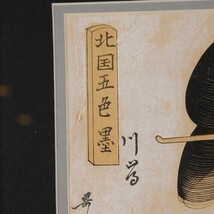 北国五色墨
川岸
哥